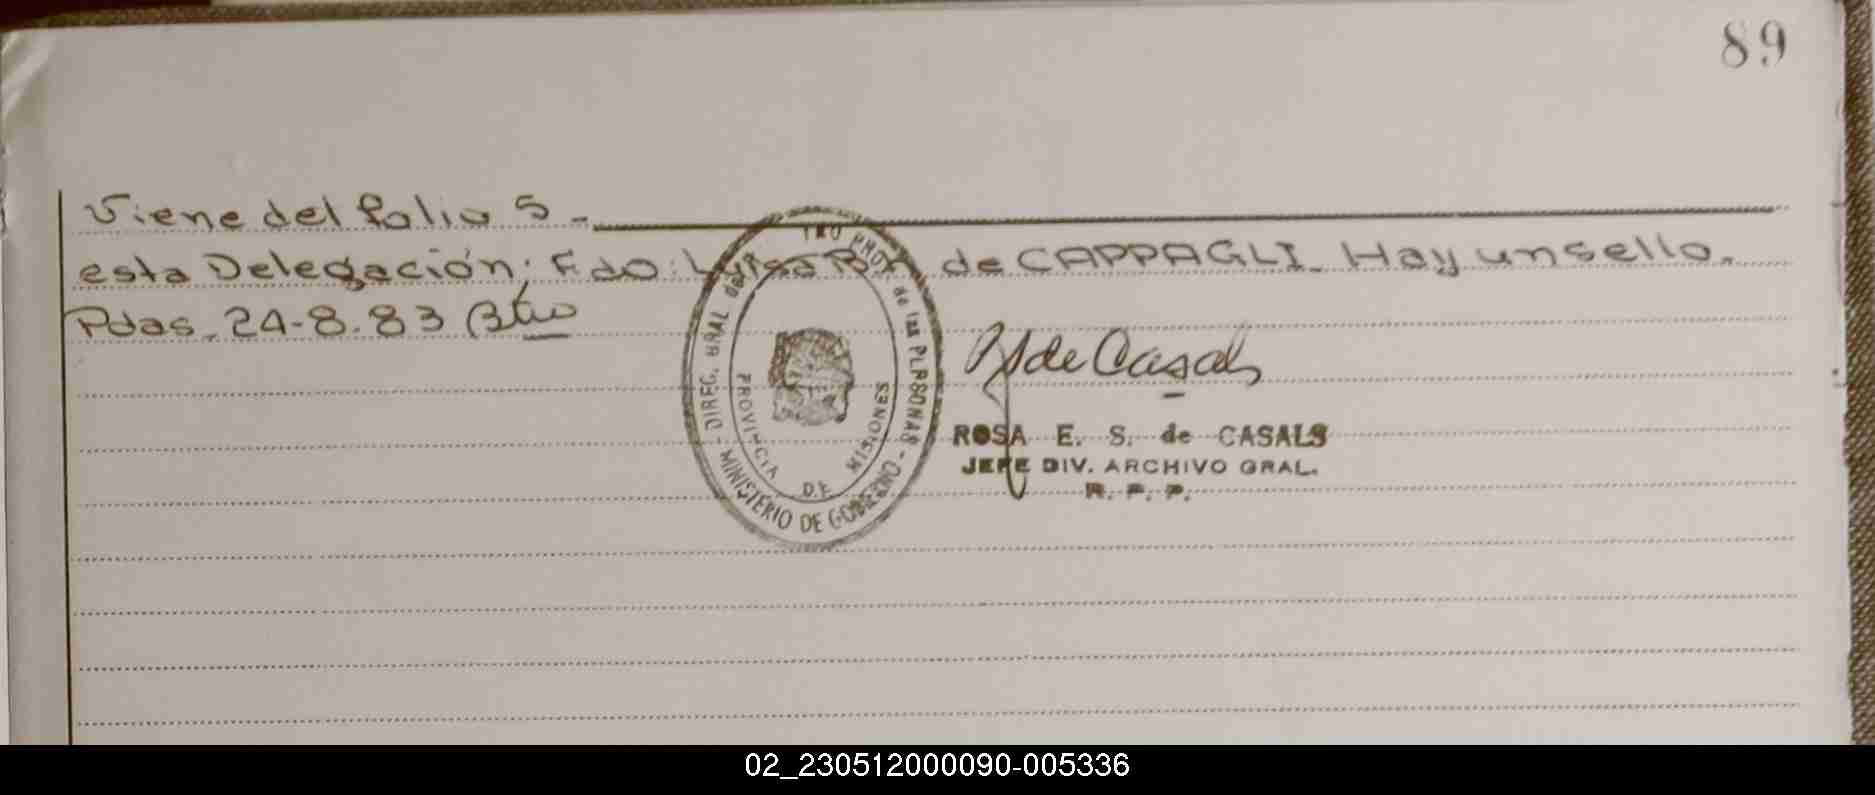 89
Viene del folio 5 -
esta Delegación; Fdo: Luisa B. de CAPPAGLI. Hay un sello.
Pdas. 24-8-83
DIREC. GRAL del PROV. de las PERSONAS - MINISTERIO DE GOBIERNO -
PROVINCIA DE MISIONES
de Casals
ROSA E. S. de CASALS
JEFE DIV. ARCHIVO GRAL.
R. P. P.
02_230512000090-005336